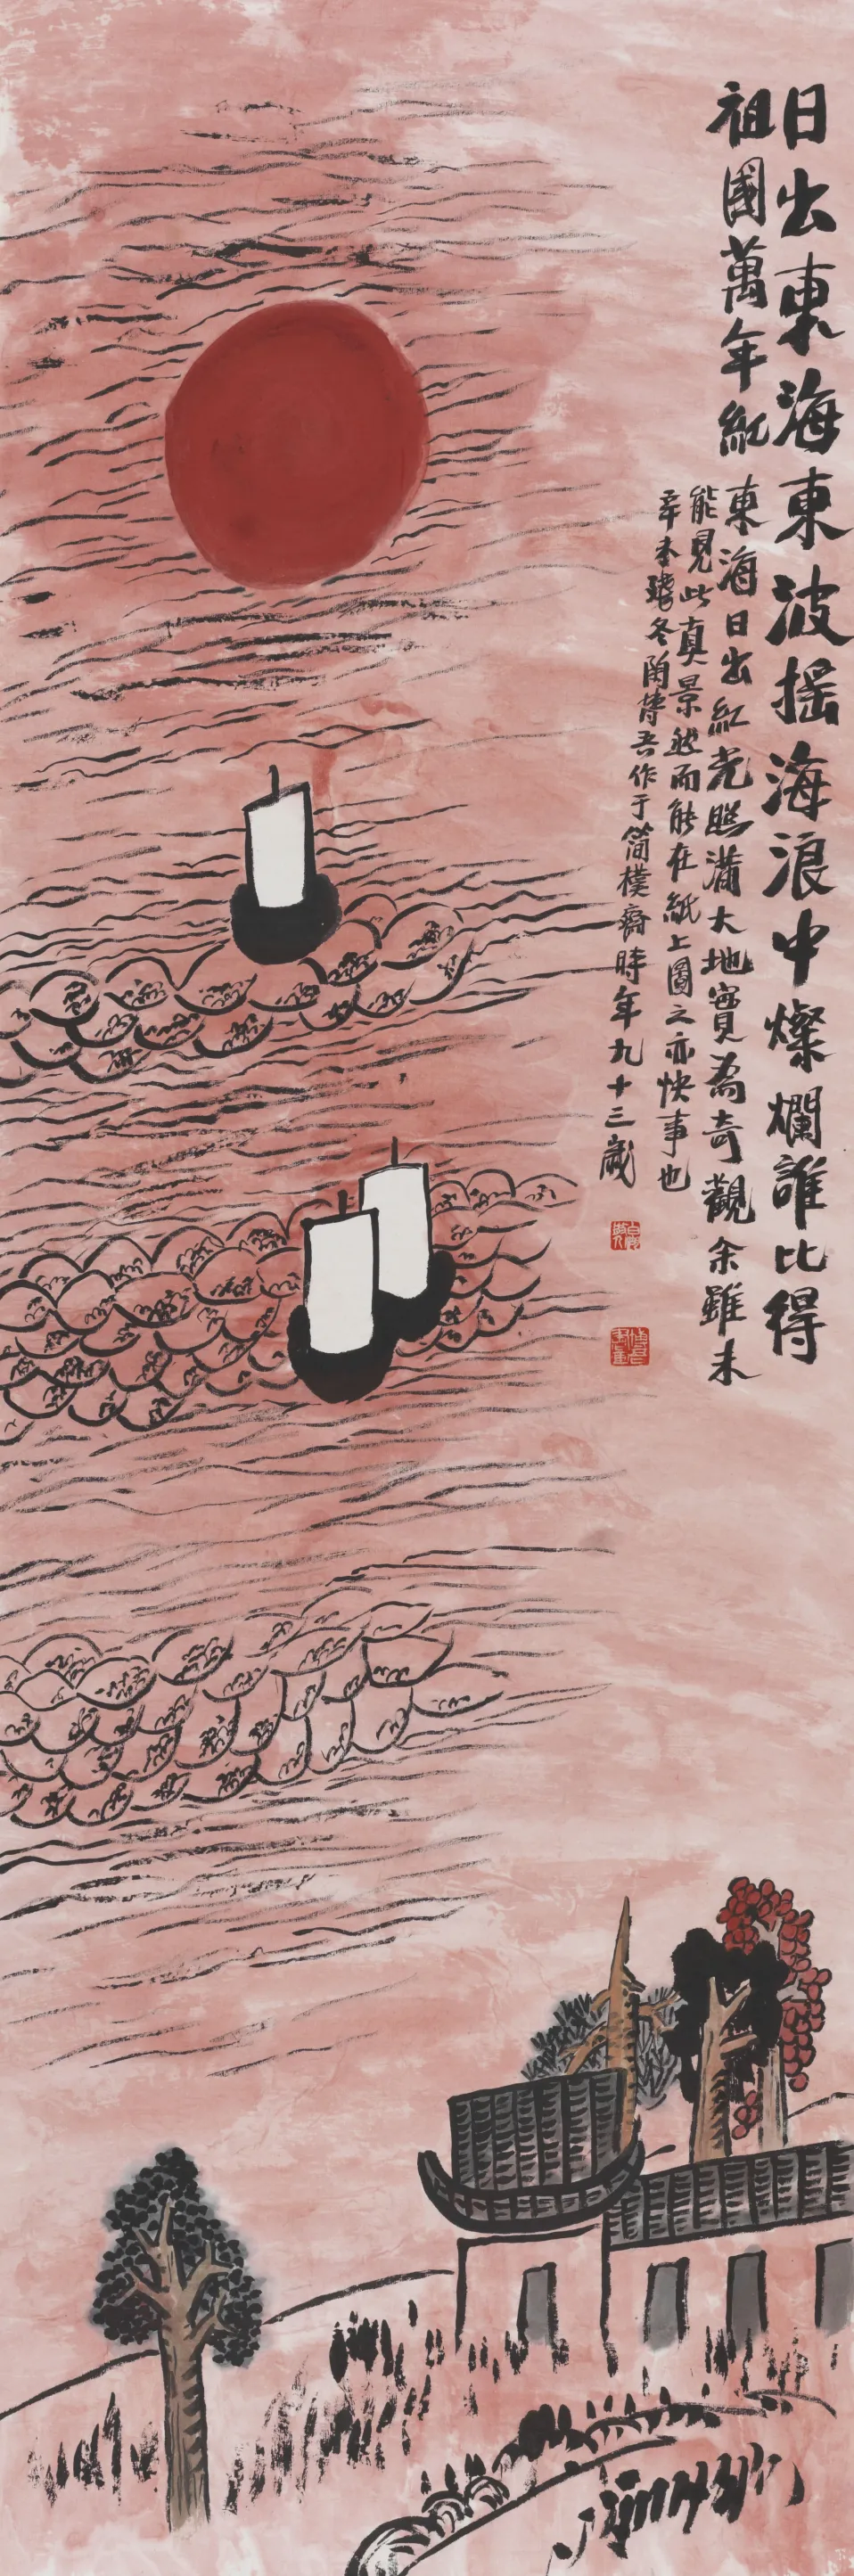 日出東海東波摇海浪中燦爛誰比得
祖國萬年紅
東海日出紅光照滿大地實為奇觀余雖未
能見此真景然而能在紙上圖之亦快事也
辛未冬陶博吾作于简樸齋時年九十三歲